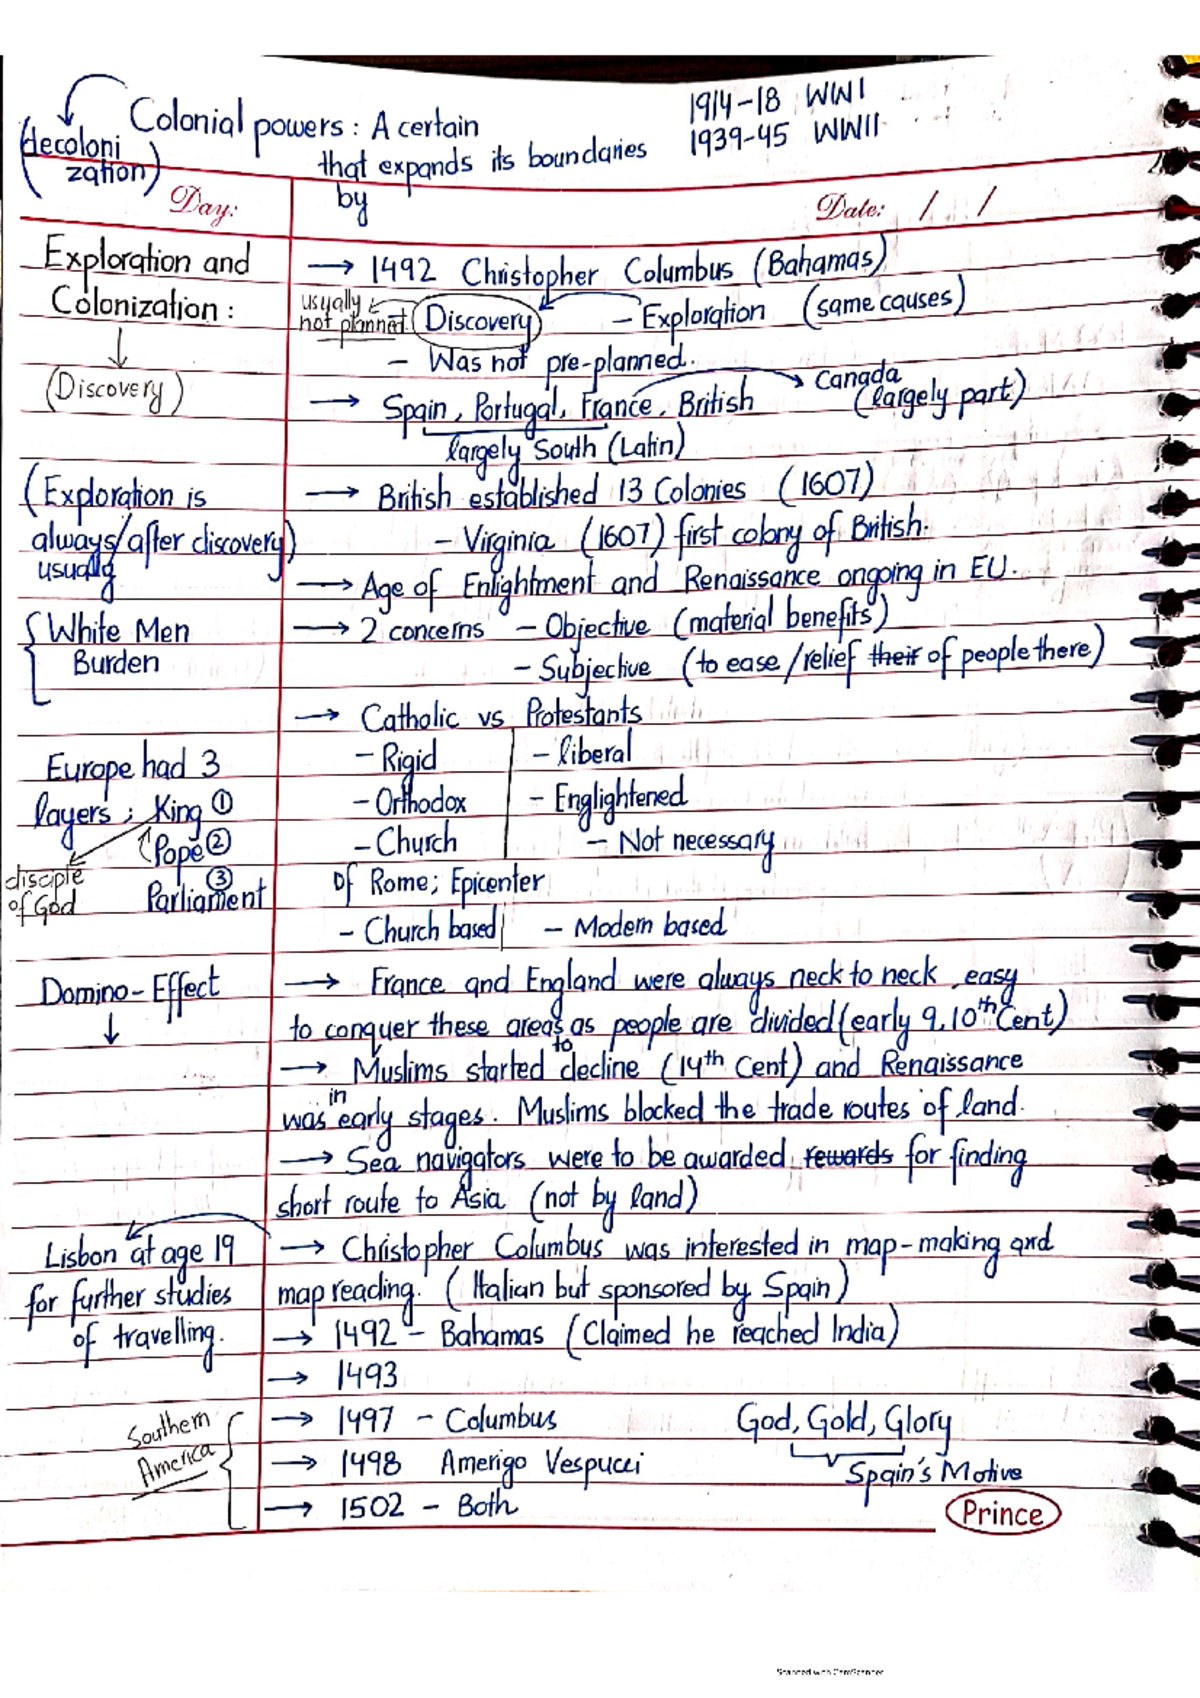 1914-18 WWI
1939-45 WWII
(decoloni
zation)
Colonial powers : A certain
that expands its boundaries
by
Day:
Date: / /
Exploration and
Colonization :
(Discovery)
→ 1492 Christopher Columbus (Bahamas)
usually
not planned.
Discovery
- Exploration (same causes)
- Was not pre-planned.
→ Spain, Portugal, France, British
Canada
(largely part)
largely South (Latin)
(Exploration is
always/after discovery)
usually
→ British established 13 Colonies (1607)
- Virginia (1607) first colony of British.
→ Age of Enlightment and Renaissance ongoing in EU.
White Men
Burden
→ 2 concerns - Objective (material benefits)
- Subjective (to ease/relief their of people there)
→ Catholic vs Protestants
- Rigid - liberal
- Orthodox - Englightened
- Church - Not necessary
of Rome; Epicenter
- Church based - Modern based
Europe had 3
layers ; King ①
Pope ②
③
Parliament
disciple
of God
Domino-Effect
→ France and England were always neck to neck, easy
to conquer these areas as people are divided (early 9,10th Cent)
→ Muslims started to decline (14th Cent) and Renaissance
was in early stages. Muslims blocked the trade routes of land.
→ Sea navigators were to be awarded rewards for finding
short route to Asia (not by land)
Lisbon at age 19
for further studies
of travelling.
→ Christopher Columbus was interested in map-making and
map reading. (Italian but sponsored by Spain)
→ 1492 - Bahamas (Claimed he reached India)
→ 1493
Southern
America
→ 1497 - Columbus
→ 1498 Amerigo Vespucci
→ 1502 - Both
God, Gold, Glory
Spain's Motive
Prince
Scanned with CamScanner